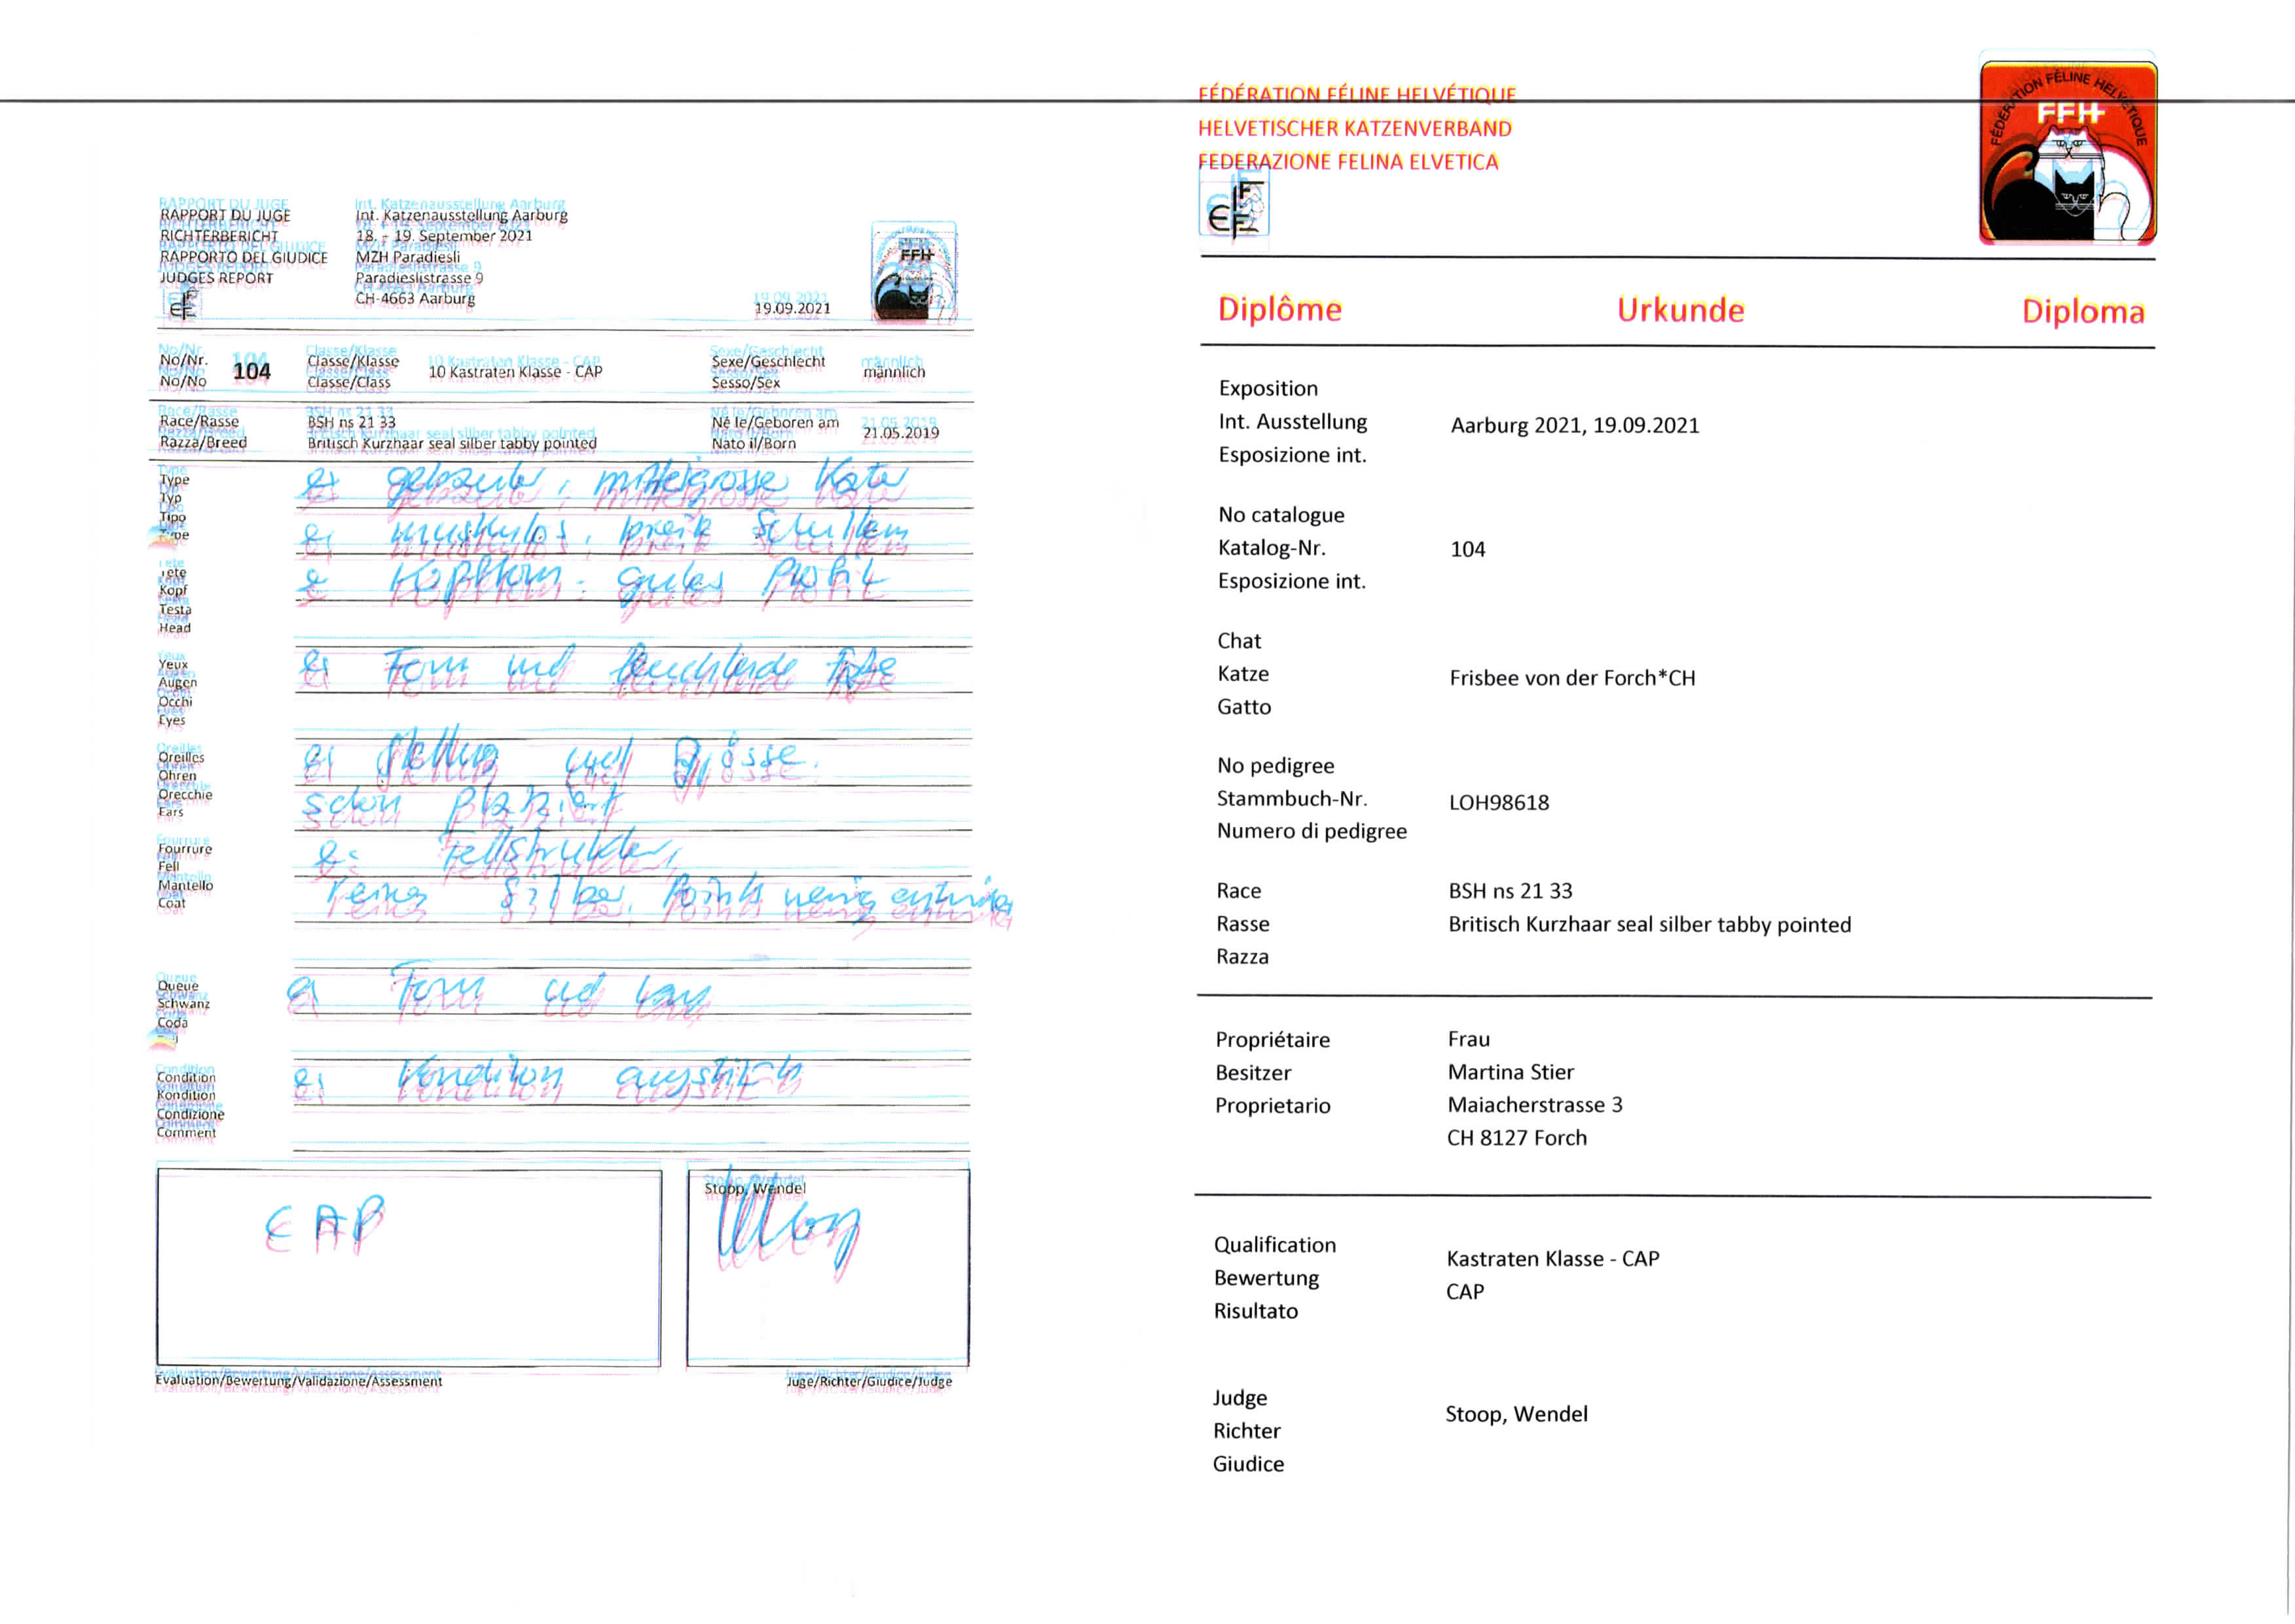 RAPPORT DU JUGE
RICHTERBERICHT
RAPPORTO DEL GIUDICE
JUDGES REPORT
Int. Katzenausstellung Aarburg
18. - 19. September 2021
MZH Paradiesli
Paradieslistrasse 9
CH-4663 Aarburg
19.09.2021
FFH
No/Nr.
No/No
104
Classe/Klasse
Classe/Class
10 Kastraten Klasse - CAP
Sexe/Geschlecht
Sesso/Sex
männlich
Race/Rasse
Razza/Breed
BSH ns 21 33
Britisch Kurzhaar seal silber tabby pointed
Né le/Geboren am
Nato il/Born
21.05.2019
Type
Typ
Tipo
Type
gebauter, mittelgrosse Kater
muskulös, breite Schultern
Tête
Kopf
Testa
Head
Kopfform. gutes Profil
Yeux
Augen
Occhi
Eyes
Form und leuchtende Farbe
Oreilles
Ohren
Orecchie
Ears
Stellung und Grösse.
schön platziert
Fourrure
Fell
Mantello
Coat
Fellstruktur,
reines Silber. Points wenig
Queue
Schwanz
Coda
Form und
Condition
Kondition
Condizione
Comment
Kondition
CAP
Stopp, Wendel
Evaluation/Bewertung/Validazione/Assessment
Juge/Richter/Giudice/Judge
FÉDÉRATION FÉLINE HELVÉTIQUE
HELVETISCHER KATZENVERBAND
FEDERAZIONE FELINA ELVETICA
FÉDÉRATION FÉLINE HELVÉTIQUE
FFH
Diplôme Urkunde Diploma
Exposition
Int. Ausstellung Aarburg 2021, 19.09.2021
Esposizione int.
No catalogue
Katalog-Nr. 104
Esposizione int.
Chat
Katze Frisbee von der Forch*CH
Gatto
No pedigree
Stammbuch-Nr. LOH98618
Numero di pedigree
Race BSH ns 21 33
Rasse Britisch Kurzhaar seal silber tabby pointed
Razza
Propriétaire Frau
Besitzer Martina Stier
Proprietario Maiacherstrasse 3
CH 8127 Forch
Qualification
Bewertung
Risultato
Kastraten Klasse - CAP
CAP
Judge
Richter
Giudice
Stoop, Wendel